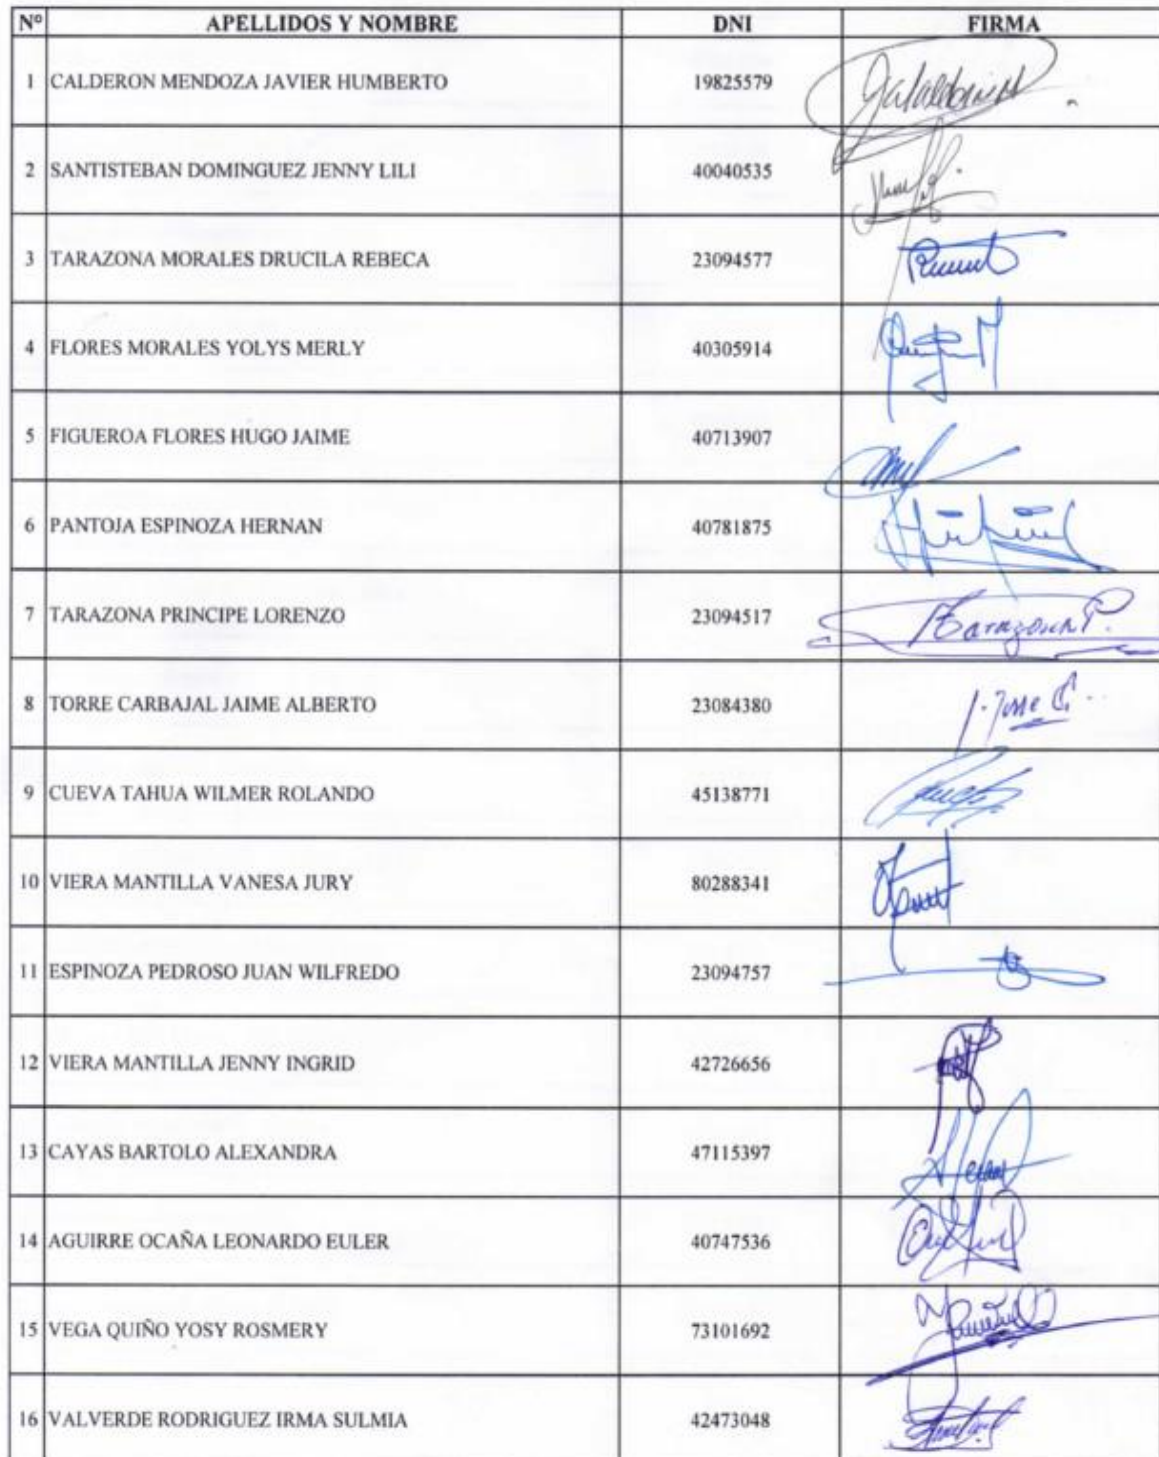 Nº APELLIDOS Y NOMBRE DNI FIRMA
1 CALDERON MENDOZA JAVIER HUMBERTO 19825579
2 SANTISTEBAN DOMINGUEZ JENNY LILI 40040535
3 TARAZONA MORALES DRUCILA REBECA 23094577
4 FLORES MORALES YOLYS MERLY 40305914
5 FIGUEROA FLORES HUGO JAIME 40713907
6 PANTOJA ESPINOZA HERNAN 40781875
7 TARAZONA PRINCIPE LORENZO 23094517
8 TORRE CARBAJAL JAIME ALBERTO 23084380
9 CUEVA TAHUA WILMER ROLANDO 45138771
10 VIERA MANTILLA VANESA JURY 80288341
11 ESPINOZA PEDROSO JUAN WILFREDO 23094757
12 VIERA MANTILLA JENNY INGRID 42726656
13 CAYAS BARTOLO ALEXANDRA 47115397
14 AGUIRRE OCAÑA LEONARDO EULER 40747536
15 VEGA QUIÑO YOSY ROSMERY 73101692
16 VALVERDE RODRIGUEZ IRMA SULMIA 42473048